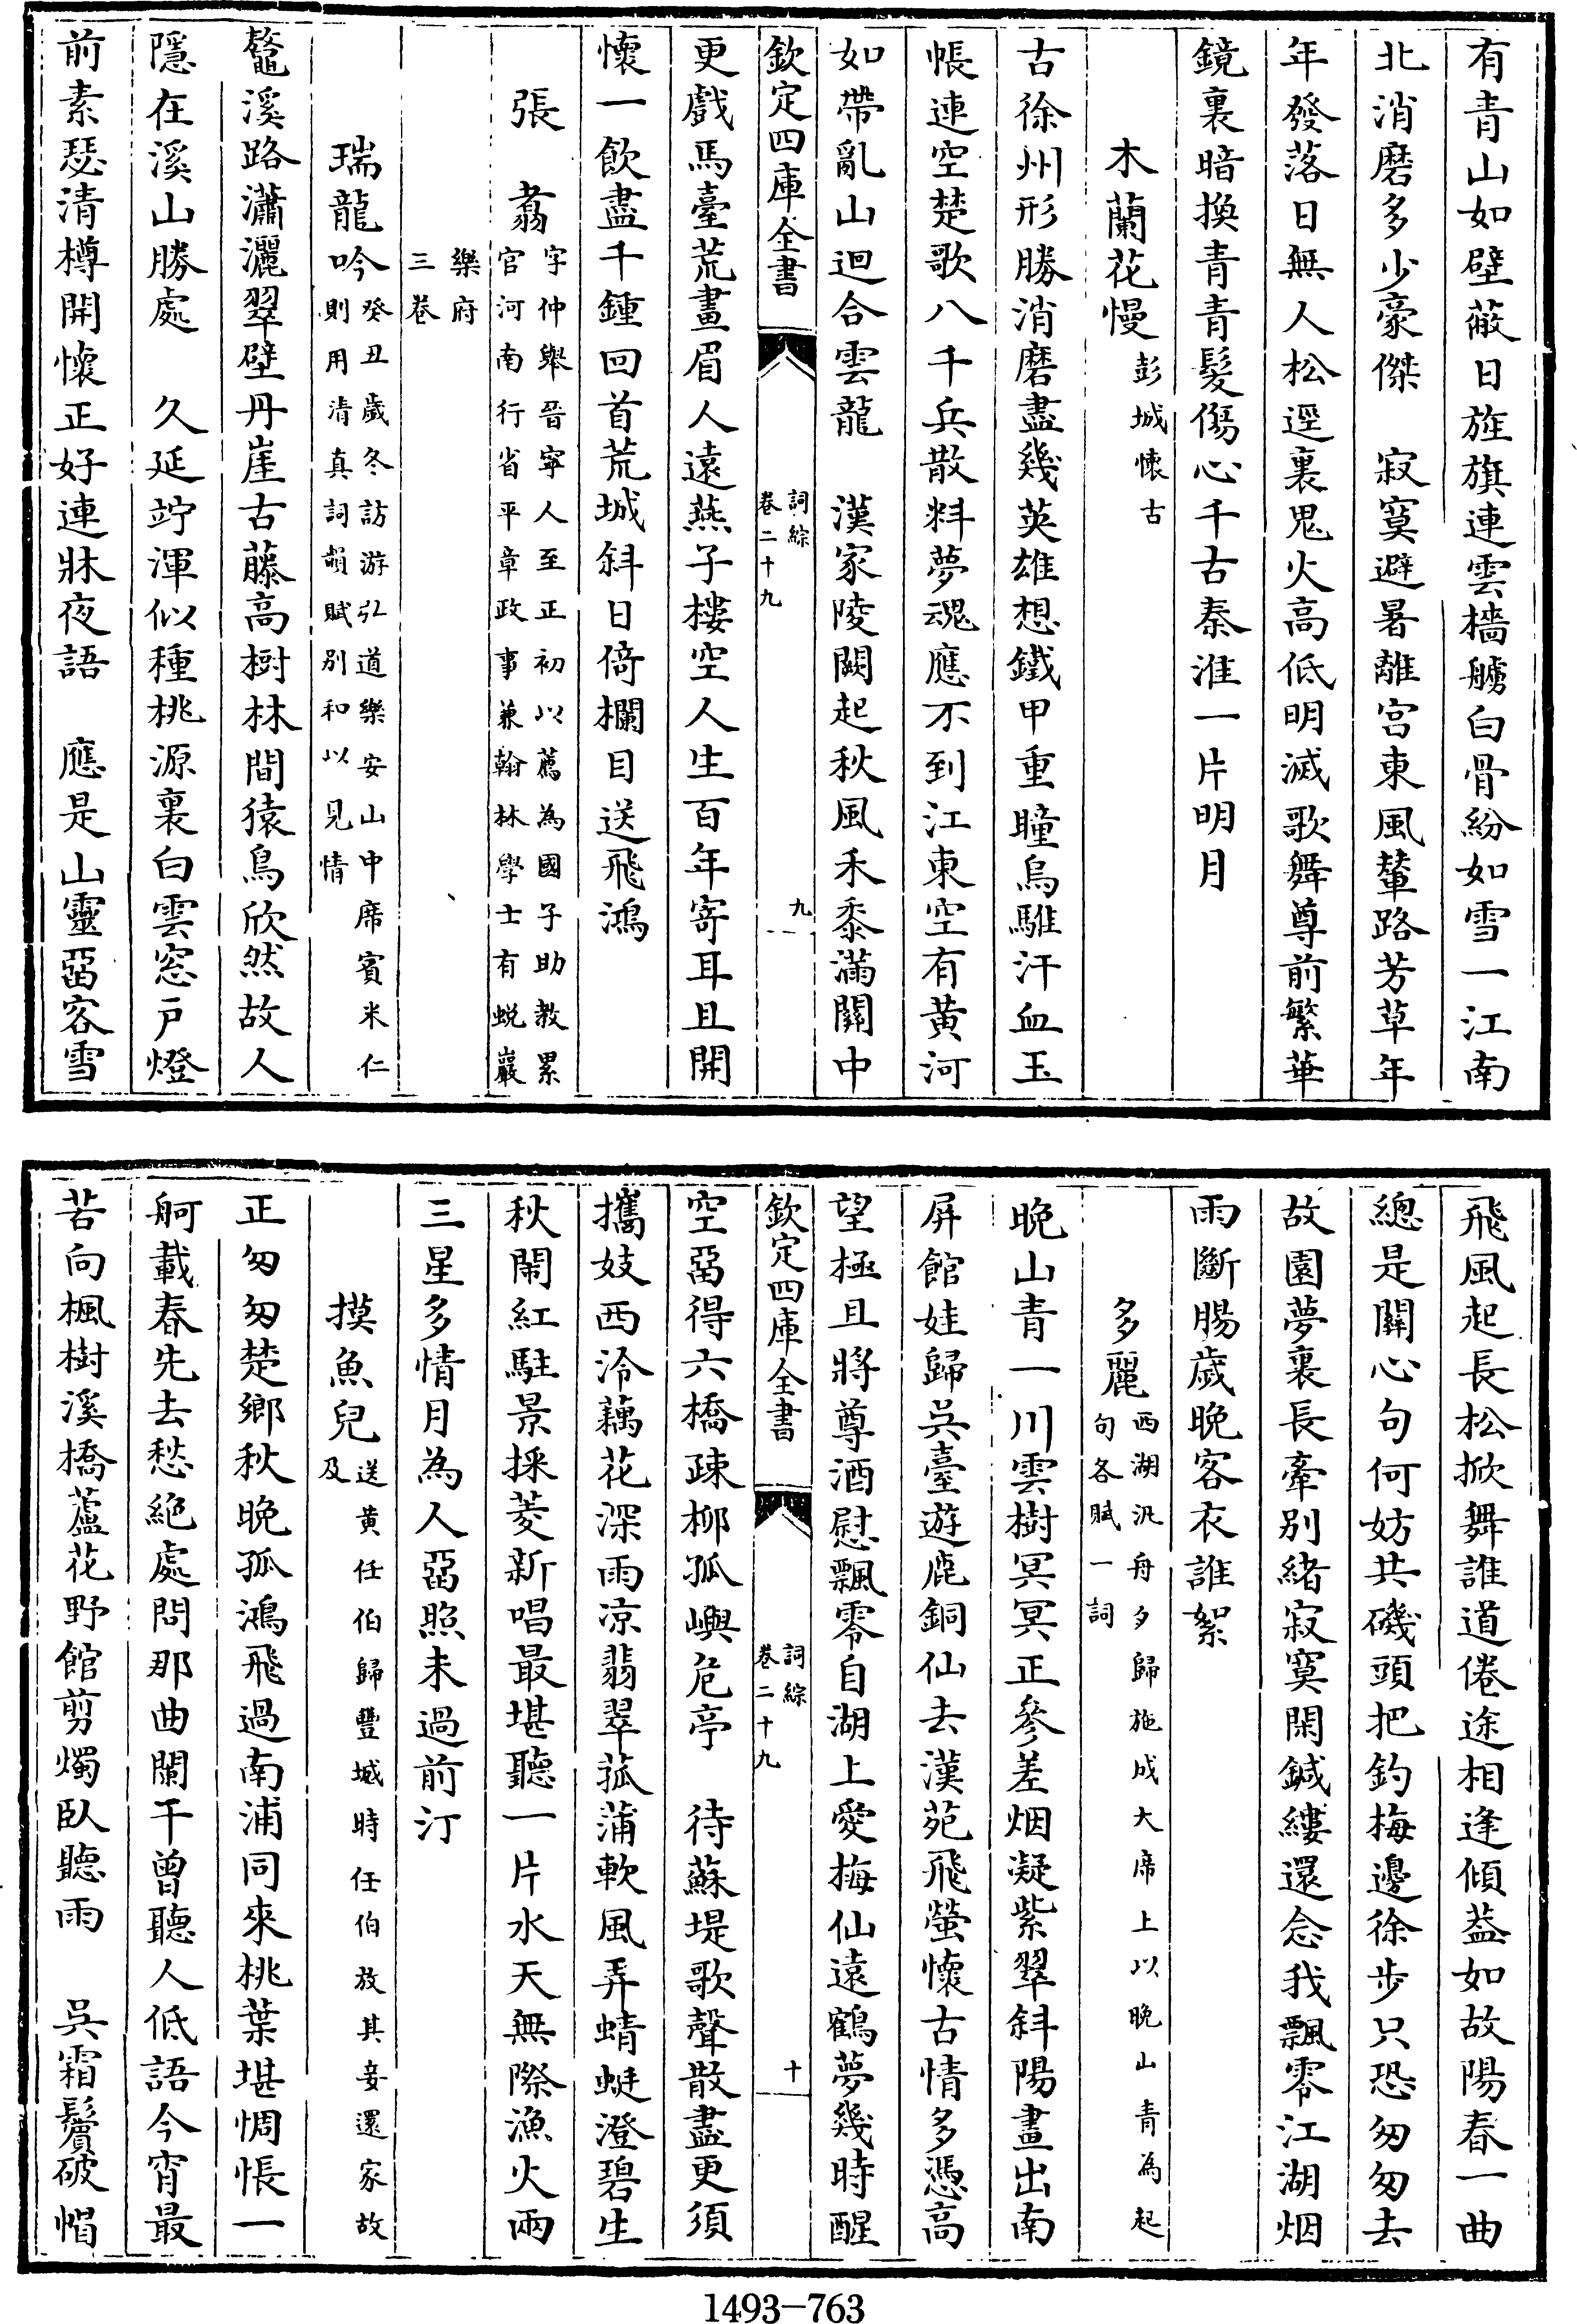 有青山如壁蔽日旌旗連雲檣艣白骨紛如雪一江南
北消磨多少豪傑　寂寞避暑離宮東風輦路芳草年
年發落日無人松逕裏鬼火高低明滅歌舞尊前繁華
鏡裏暗換青青髮傷心千古秦淮一片明月
木蘭花慢彭城懷古
古徐州形勝消磨盡幾英雄想鐵甲重瞳烏騅汗血玉
帳連空楚歌八千兵散料夢魂應不到江東空有黃河
如帶亂山迴合雲龍　漢家陵闕起秋風禾黍滿關中
欽定四庫全書　詞綜卷二十九　九
更戲馬臺荒畫眉人遠燕子樓空人生百年寄耳且開
懷一飲盡千鍾回首荒城斜日倚欄目送飛鴻
張　翥字仲舉晉寧人至正初以薦為國子助教累
官河南行省平章政事兼翰林學士有蛻巖
樂府
三卷
瑞龍吟癸丑歲冬訪游弘道樂安山中席賓米仁
則用清真詞韻賦別和以見情
鼇溪路瀟灑翠壁丹崖古藤高樹林間猿鳥欣然故人
隱在溪山勝處　久延竚渾似種桃源裏白雲窓戶燈
前素瑟清樽開懷正好連牀夜語　應是山靈畱客雪
飛風起長松掀舞誰道倦途相逢傾葢如故陽春一曲
總是關心句何妨共磯頭把釣梅邊徐步只恐匆匆去
故園夢裏長牽別緒寂寞閑鍼縷還念我飄零江湖烟
雨斷腸歲晚客衣誰絮
多麗西湖汎舟夕歸施成大席上以晚山青為起
句各賦一詞
晚山青一川雲樹冥冥正參差烟凝紫翠斜陽畫出南
屏館娃歸吳臺遊鹿銅仙去漢苑飛螢懷古情多憑高
望極且將尊酒慰飄零自湖上愛梅仙遠鶴夢幾時醒
欽定四庫全書　詞綜卷二十九　十
空畱得六橋疎柳孤嶼危亭　待蘇堤歌聲散盡更須
攜妓西泠藕花深雨凉翡翠菰蒲軟風弄蜻蜓澄碧生
秋閙紅駐景採菱新唱最堪聽一片水天無際漁火兩
三星多情月為人畱照未過前汀
摸魚兒送黃任伯歸豐城時任伯放其妾還家故
及
正匆匆楚鄉秋晚孤鴻飛過南浦同來桃葉堪惆悵一
舸載春先去愁絕處問那曲闌干曾聽人低語今宵最
苦向楓樹溪橋蘆花野館剪燭臥聽雨　吳霜鬢破帽
1493—763